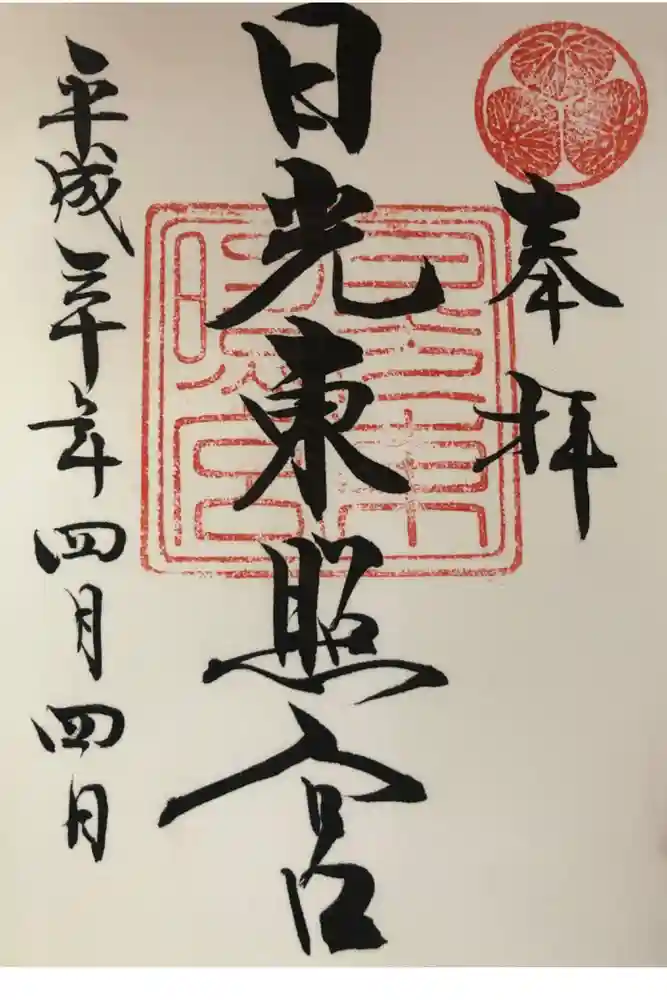 奉拝
日光東照宮
平成三十年四月四日